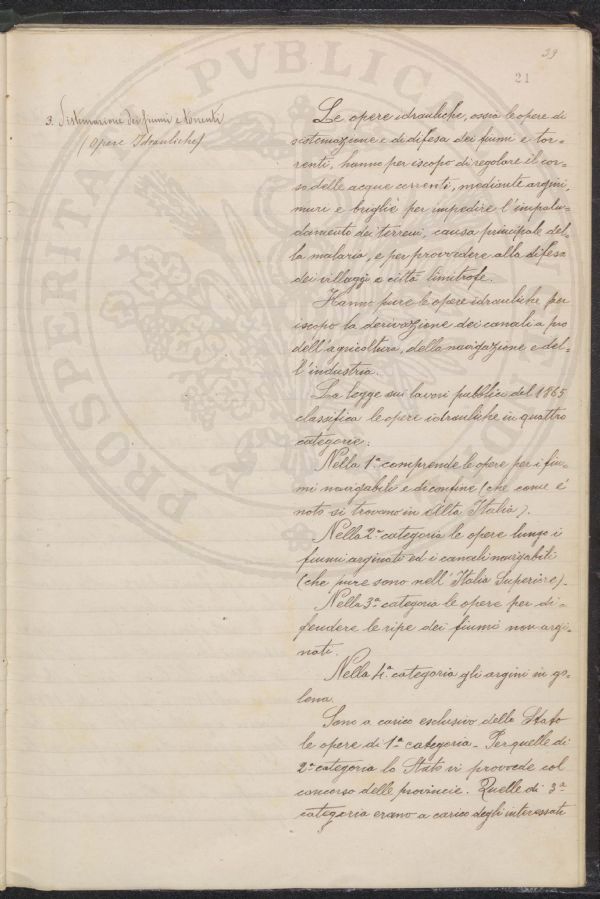 39
21
3. Sistemazione dei fiumi e torrenti
(Opere Idrauliche)
Le opere idrauliche, ossia le opere di
sistemazione e di difesa dei fiumi e tor-
renti, hanno per iscopo di regolare il cor-
so delle acque correnti, mediante argini,
muri e briglie per impedire l'impalu-
damento dei terreni, causa principale del-
la malaria, e per provvedere alla difesa
dei villaggi e città limitrofe.
Hanno pure le opere idrauliche per
iscopo la derivazione dei canali a pro
dell'agricoltura, della navigazione e del-
l'industria.
La legge sui lavori pubblici del 1865
classifica le opere idrauliche in quattro
categorie:
Nella 1ª comprende le opere per i fiu-
mi navigabili e di confine (che come è
noto si trovano in Alta Italia).
Nella 2ª categoria le opere lungo i
fiumi arginati ed i canali navigabili
(che pure sono nell'Italia Superiore).
Nella 3ª categoria le opere per di-
fendere le ripe dei fiumi non argi-
nati.
Nella 4ª categoria gli argini in go-
lena.
Sono a carico esclusivo dello Stato
le opere di 1ª categoria. Per quelle di
2ª categoria lo Stato vi provvede col
concorso delle provincie. Quelle di 3ª
categoria erano a carico degli interessati
PROSPERITA PVBLICA